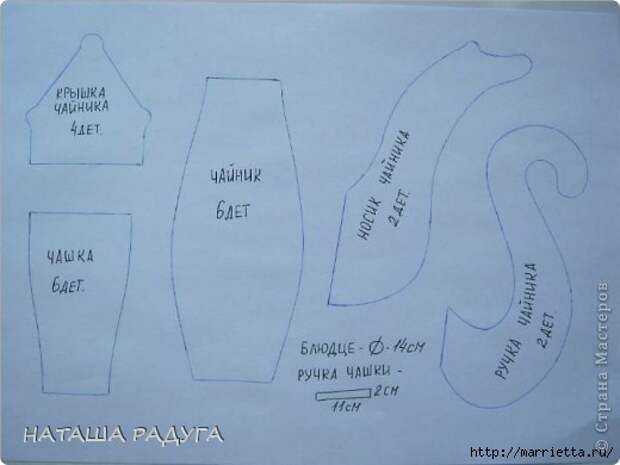 КРЫШКА
ЧАЙНИКА
4ДЕТ.
ЧАЙНИК
6ДЕТ
НОСИК ЧАЙНИКА
2 ДЕТ.
ЧАШКА
6ДЕТ.
РУЧКА ЧАЙНИКА
2 ДЕТ.
БЛЮДЦЕ - Ø - 14СМ
РУЧКА ЧАШКИ -
2СМ
11СМ
НАТАША РАДУГА
© Страна Мастеров
http://marrietta.ru/